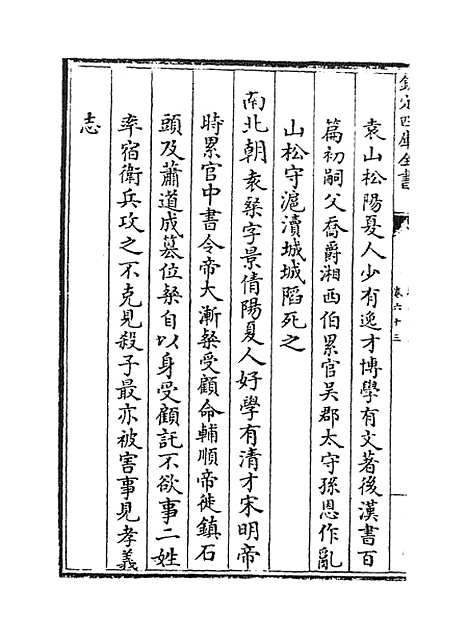 欽定四庫全書
卷六十三
袁山松陽夏人少有逸才博學有文著後漢書百
篇初嗣父喬爵湘西伯累官吳郡太守孫恩作亂
山松守滬瀆城城陷死之
南北朝袁粲字景倩陽夏人好學有清才宋明帝
時累官中書令帝大漸粲受顧命輔順帝徙鎮石
頭及蕭道成墓位粲自以身受顧託不欲事二姓
率宿衛兵攻之不克見殺子最亦被害事見孝義
志